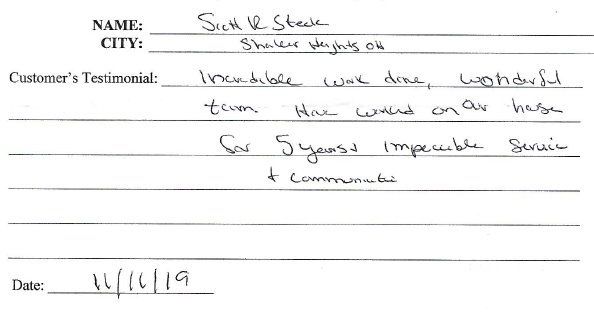 NAME: Scott R Steck
CITY: Shaker Heights OH
Customer's Testimonial: Incredible work done, wonderful
team. Have worked on our house
for 5 years & impeccible service
& communicatio
Date: 11/11/19